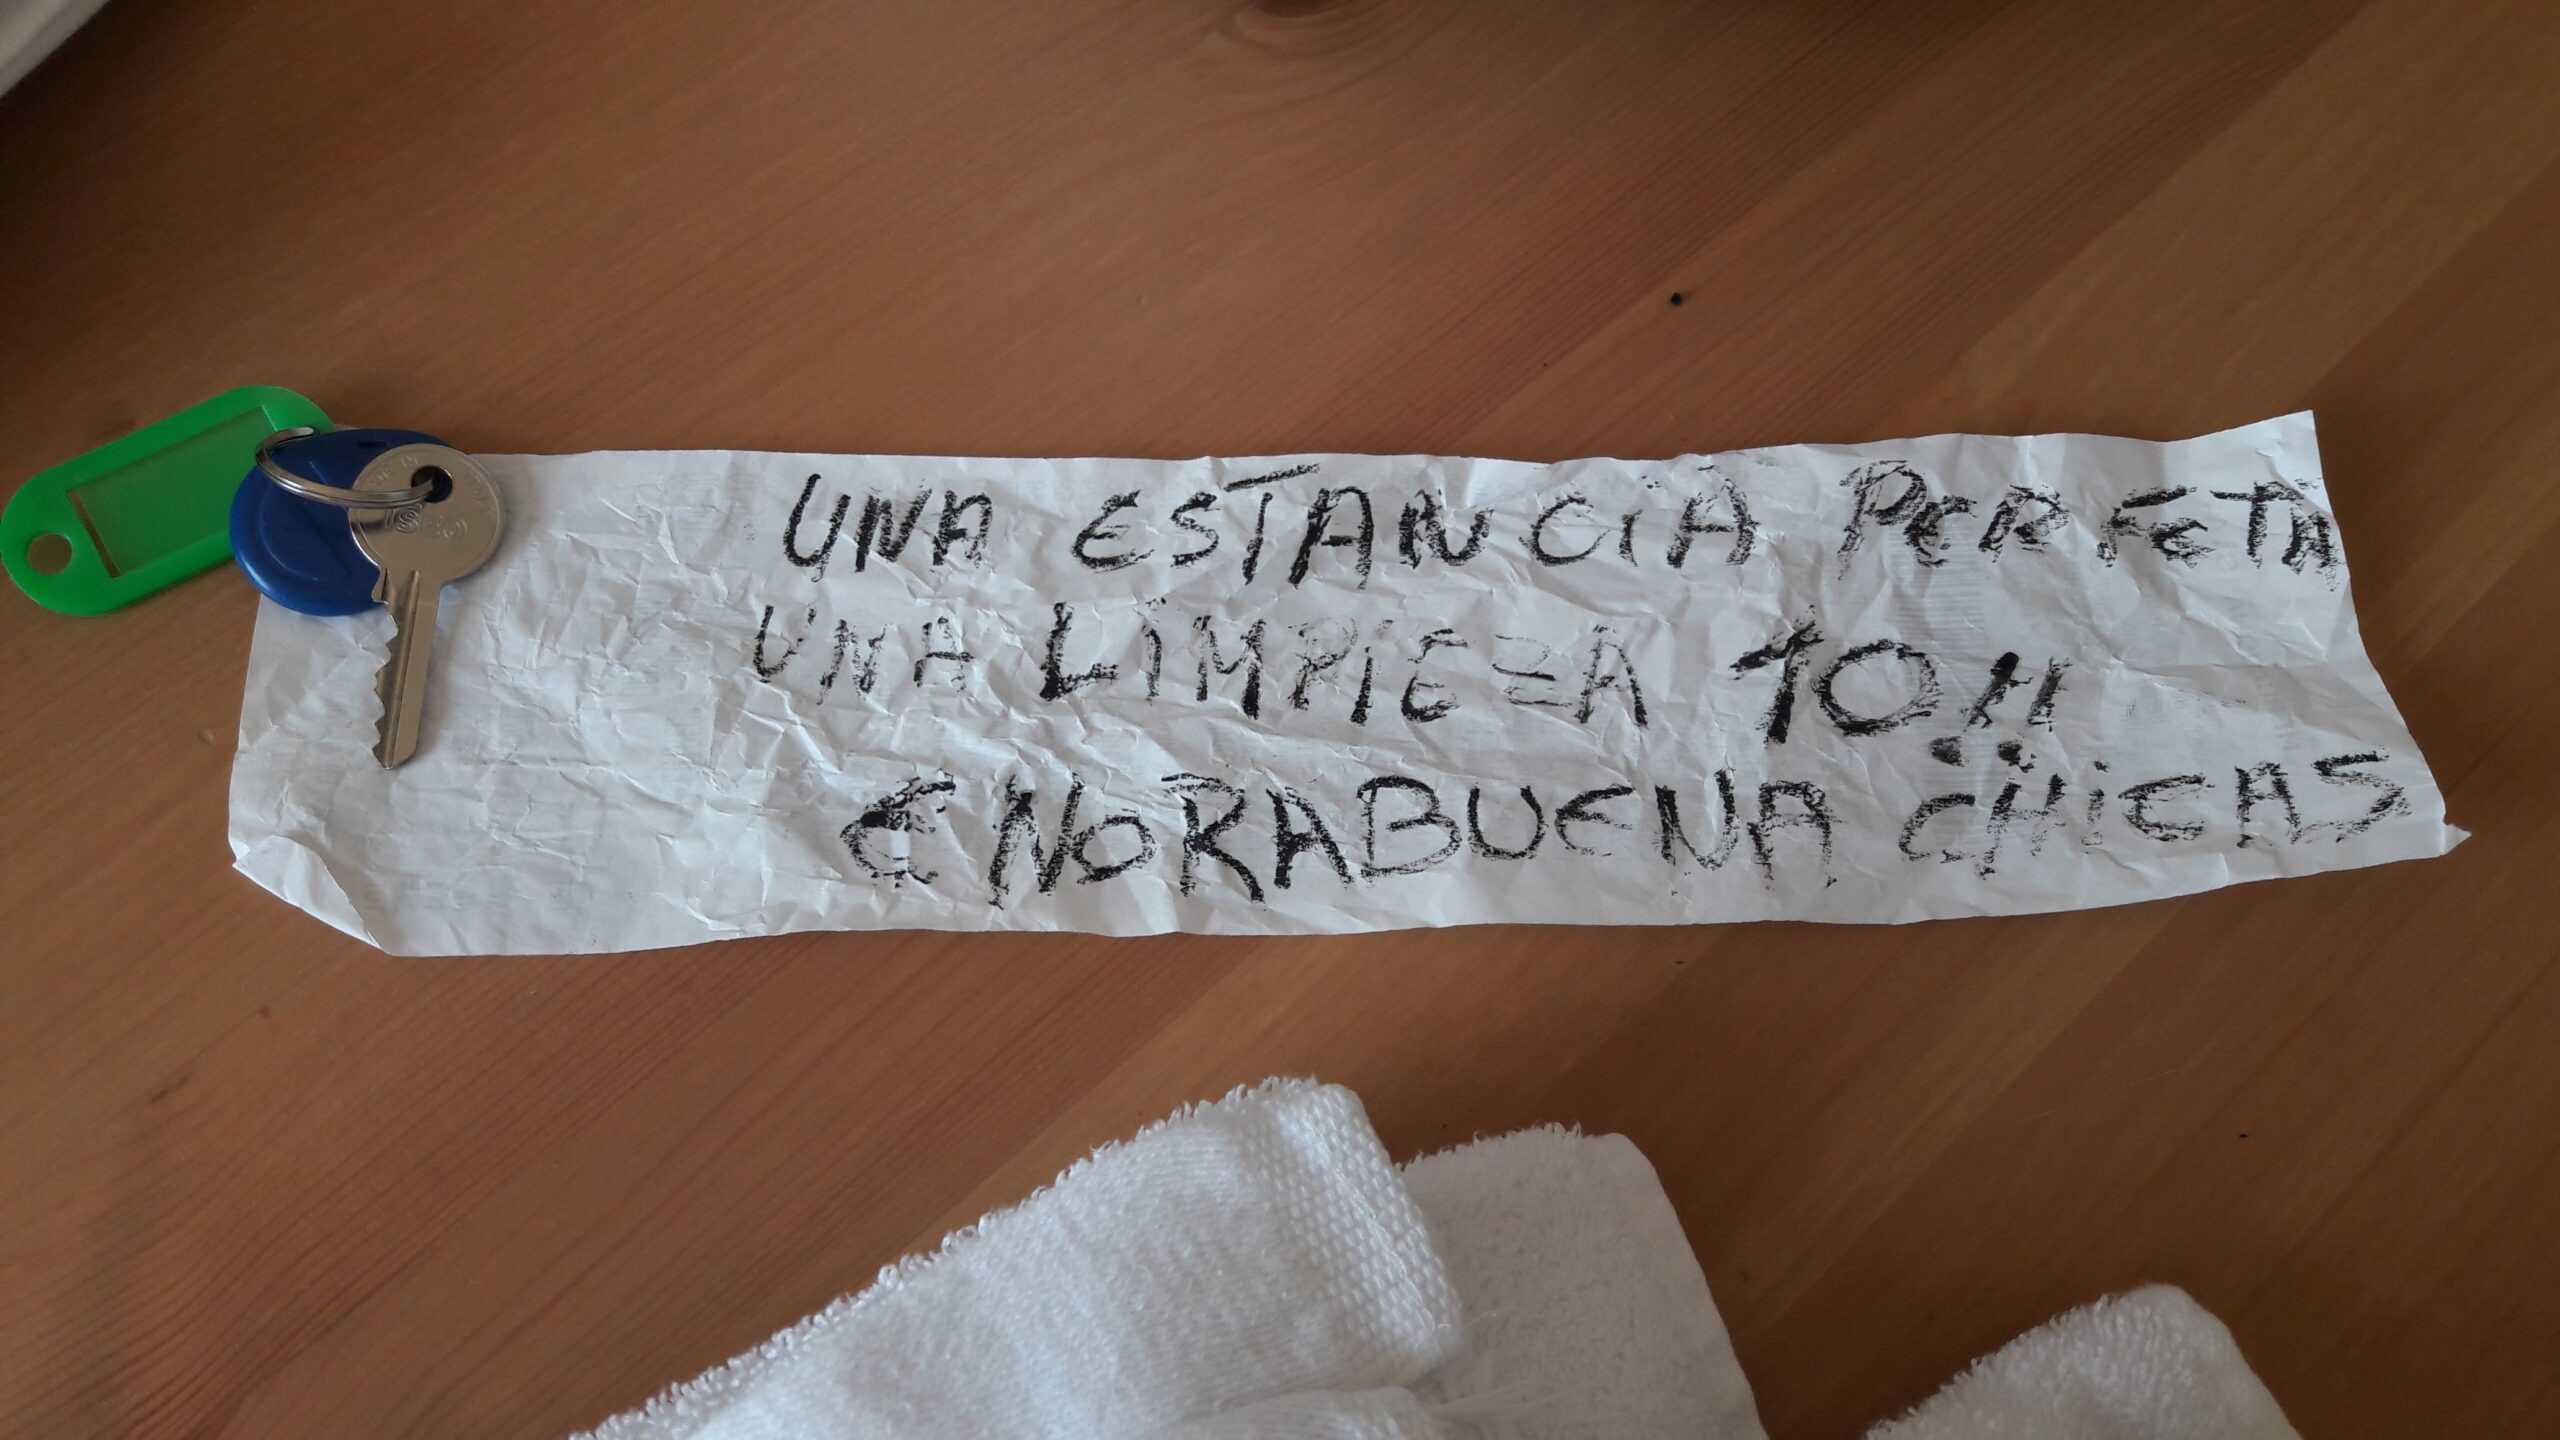 UNA ESTANCIA PERFETA
UNA LIMPIEZA 10!!
ENORABUENA CHICAS